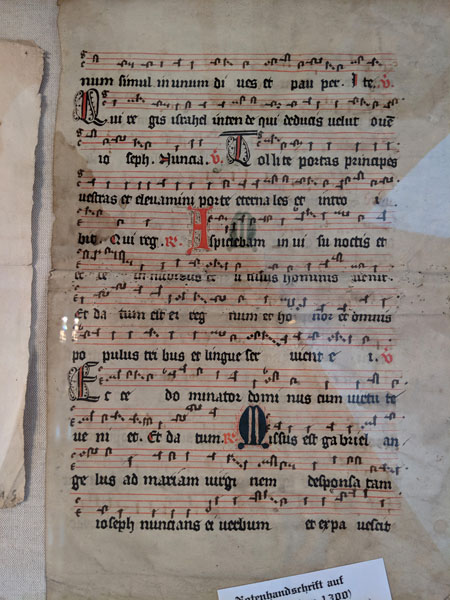 num simul in unum di ves et pau per. I te. V
Qui re gis israhel inten de qui deducis velut ovē
io seph. Nuncia. V Tol li te portas principes
vestras et elevamini porte eterna les et intro i
bit. Qui reg. R. Aspiciebam in vi su noctis et
ec ce in nubibus ce li filius hominis venit.
Et da tum est ei reg num et ho nor et omnis
po pulus tri bus et lingue ser vient e i. V
Ec ce do minator domi nus cum virtu te
ve ni et. Et da tum. R. Missus est gabriel an
ge lus ad mariam virgi nem desponsa tam
ioseph nuncians ei verbum et expa vescit
Notenhandschrift auf
1300)